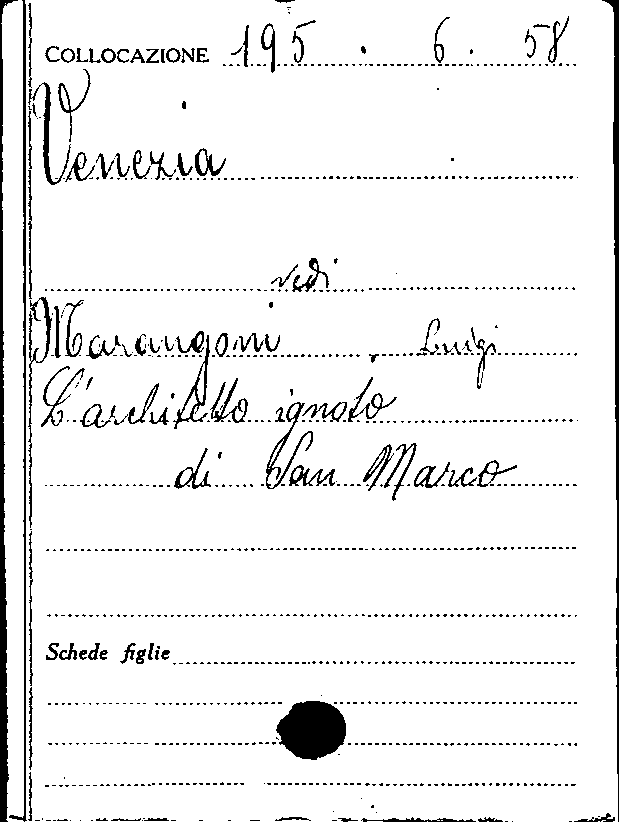 COLLOCAZIONE 195 . 6 . 58
Venezia
vedi
Marangoni , Luigi
L'architetto ignoto
di San Marco
Schede figlie